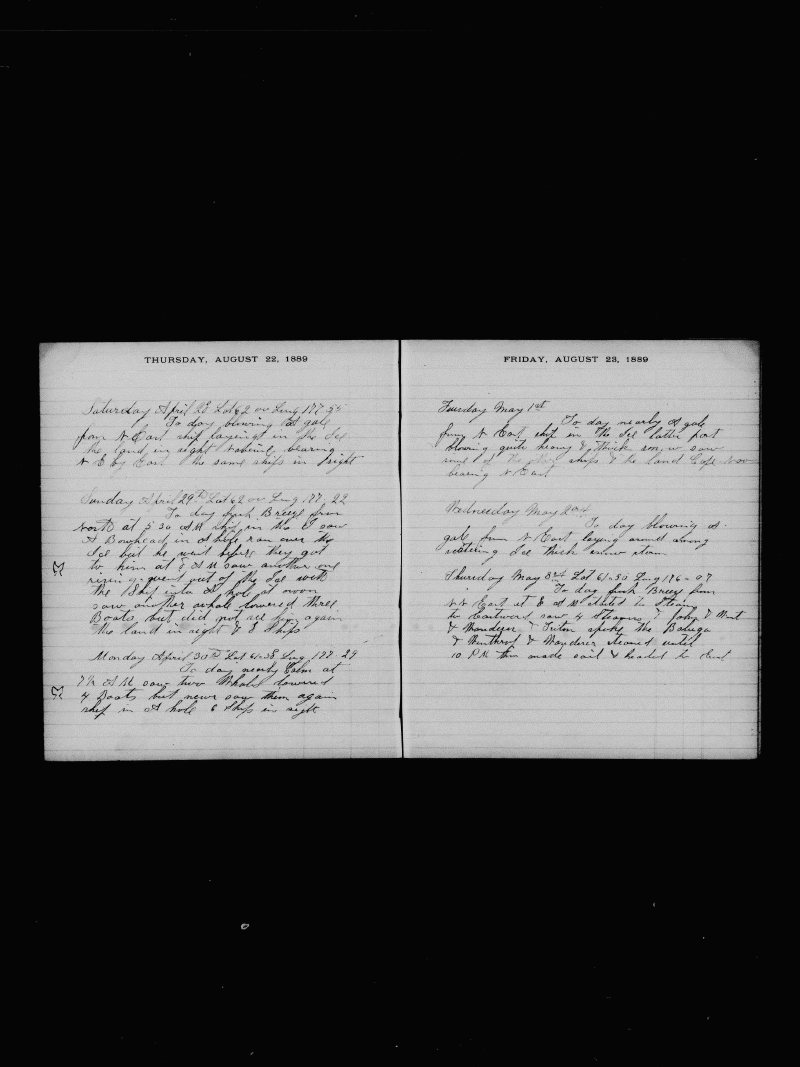 THURSDAY, AUGUST 22, 1889
Saturday April 28 Lat 62 00 Long 177 55
To day blowing A gale
from N East ship laying in the Ice
the land in sight bearing
N E by East the same ships in sight
Sunday April 29th Lat 62 00 Long 177, 22
To day fresh Breeze from
North at 5 30 AM ship in the I saw
A Bowhead in A hole ran over the
Ice but he went before they got
to him at 9 AM saw another one
rising & went out of the Ice with
the Ship into A hole at noon
saw another whale lowered three
Boats but did not see him again
the land in sight & 8 Ships
Monday April 30th Lat 61-38 Long 177-29
To day nearly Calm at
7½ A M saw two Whales lowered
4 Boats but never saw them again
ship in A hole 6 Ships in sight
FRIDAY, AUGUST 23, 1889
Tuesday May 1st
To day nearly A gale
from N East ship in the Ice latter part
blowing quite heavy & thick snow saw
some of the ships & the land Cape
bearing N East
Wednesday May 2nd
To day blowing A
gale from N East laying around among
Ice thick snow storm
Thursday May 3rd Lat 61-30 Long 176-07
To day fresh Breeze from
N N East at 8 A M started to Steaming
to Eastward saw 4 Steamers &
& Wanderer & Triton spoke the Baluga
& Winthrop & Wanderer steamed until
10 P.M then made sail & headed to